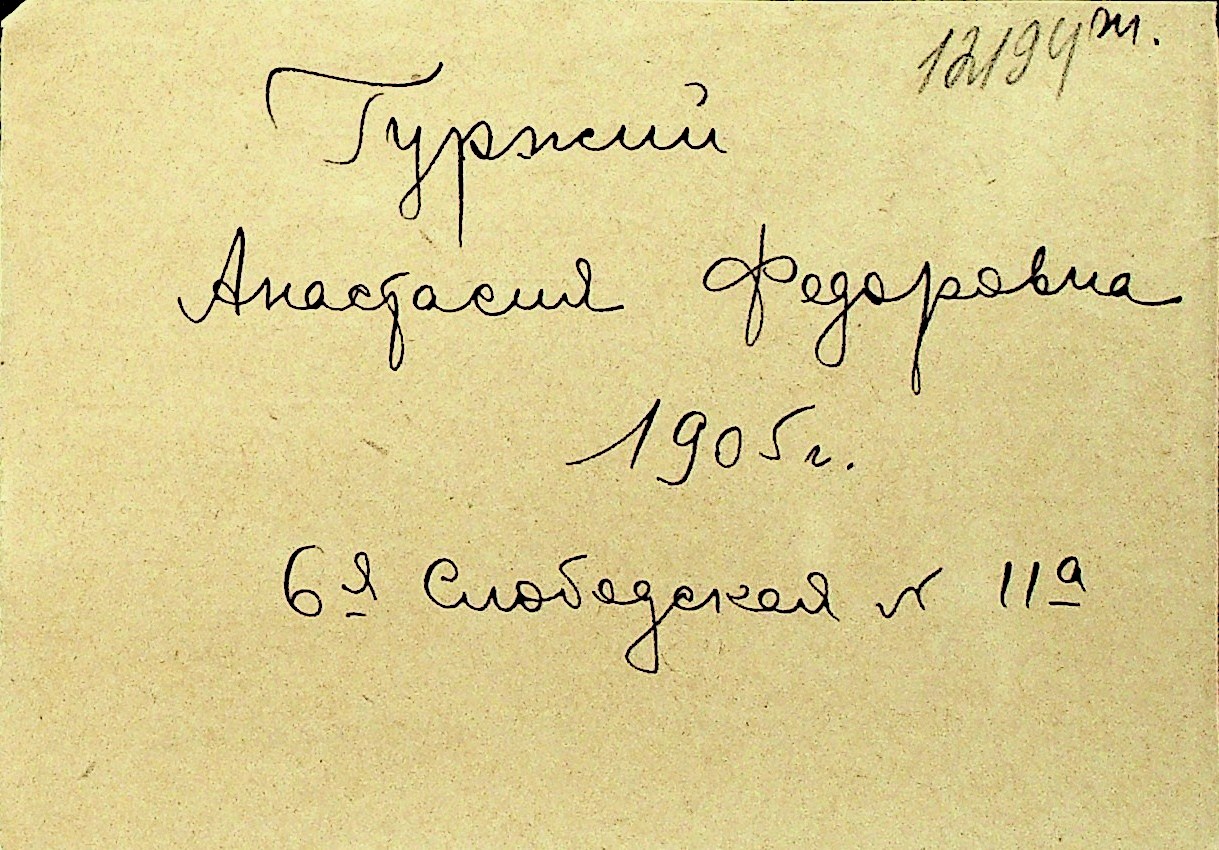 12194 ж.
Гуржий
Анастасия Федоровна
1905 г.
6я Слободская N 11а